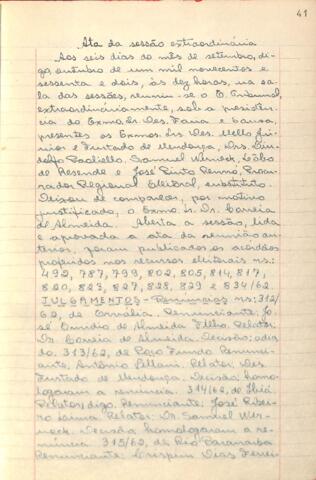 41
Ata da sessão extraordinária
Aos seis dias do mês de setembro, di-
go, outubro de um mil novecentos e
sessenta e dois, às dez horas, na sa-
la das sessões, reuniu-se o E. Tribunal,
extraordinàriamente, sob a presidên-
cia do Exmo. Sr. Des. Faria e Sousa,
presentes os Exmos. Srs. Des. Mello Jú-
nior e Furtado de Mendonça, Drs. Lin-
dolfo Paoliello, Samuel Werneck,
de Resende e José Pinto Rennó, Procu-
rador Regional Eleitoral, substituto.
Deixou de comparecer, por motivo
justificado, o Exmo. Sr. Dr. Correia
de Almeida. Aberta a sessão, lida
e aprovada a ata da reunião an-
terior, foram publicados os acórdãos
proferidos nos recursos eleitorais nrs:
492, 787, 799, 802, 805, 814, 817,
820, 823, 827, 828, 829 e 834/62.
JULGAMENTOS - Renúncias nrs: 312/
62, de Ervália. Renunciante: Jo-
sé Emidio de Almeida Filho. Relator:
Dr. Correia de Almeida. Decisão: adia-
do. 313/62, de Poço Fundo. Renunci-
ante: Antônio Lellani. Relator: Des.
Furtado de Mendonça. Decisão: homo-
logaram a renúncia. 314/62, de Ibiá.
Relator, digo, Renunciante: José Ribei-
ro Lima. Relator: Dr. Samuel Wer-
neck. Decisão: homologaram a re-
núncia. 315/62, de Rio Paranaíba.
Renunciante: Crispim Dias Ferrei-